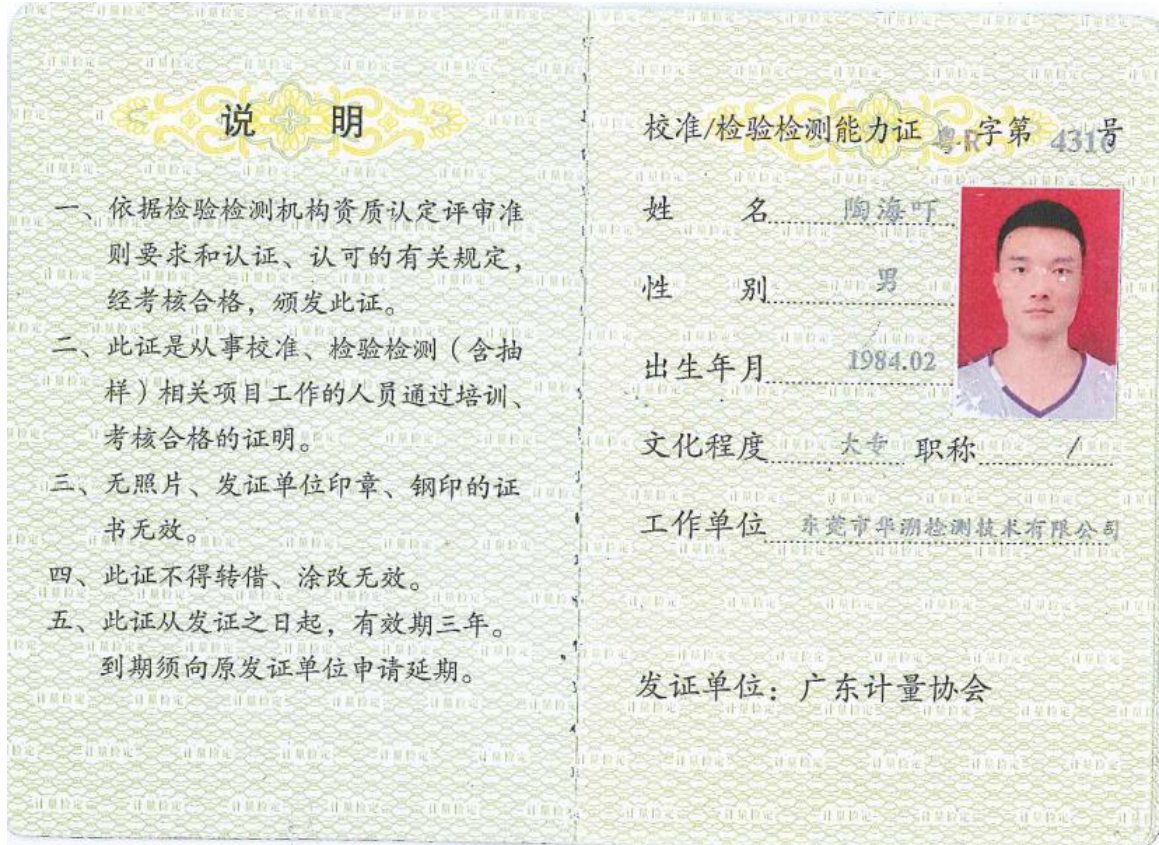 说 明
一、依据检验检测机构资质认定评审准
则要求和认证、认可的有关规定，
经考核合格，颁发此证。
二、此证是从事校准、检验检测（含抽
样）相关项目工作的人员通过培训、
考核合格的证明。
三、无照片、发证单位印章、钢印的证
书无效。
四、此证不得转借、涂改无效。
五、此证从发证之日起，有效期三年。
到期须向原发证单位申请延期。
校准/检验检测能力证 粤R字第 4316号
姓 名 陶海吓
性 别 男
出生年月 1984.02
文化程度 大专 职称 /
工作单位 东莞市华溯检测技术有限公司
发证单位：广东计量协会